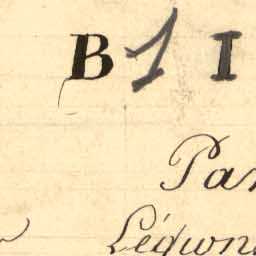 B 1 I
Par
Légion